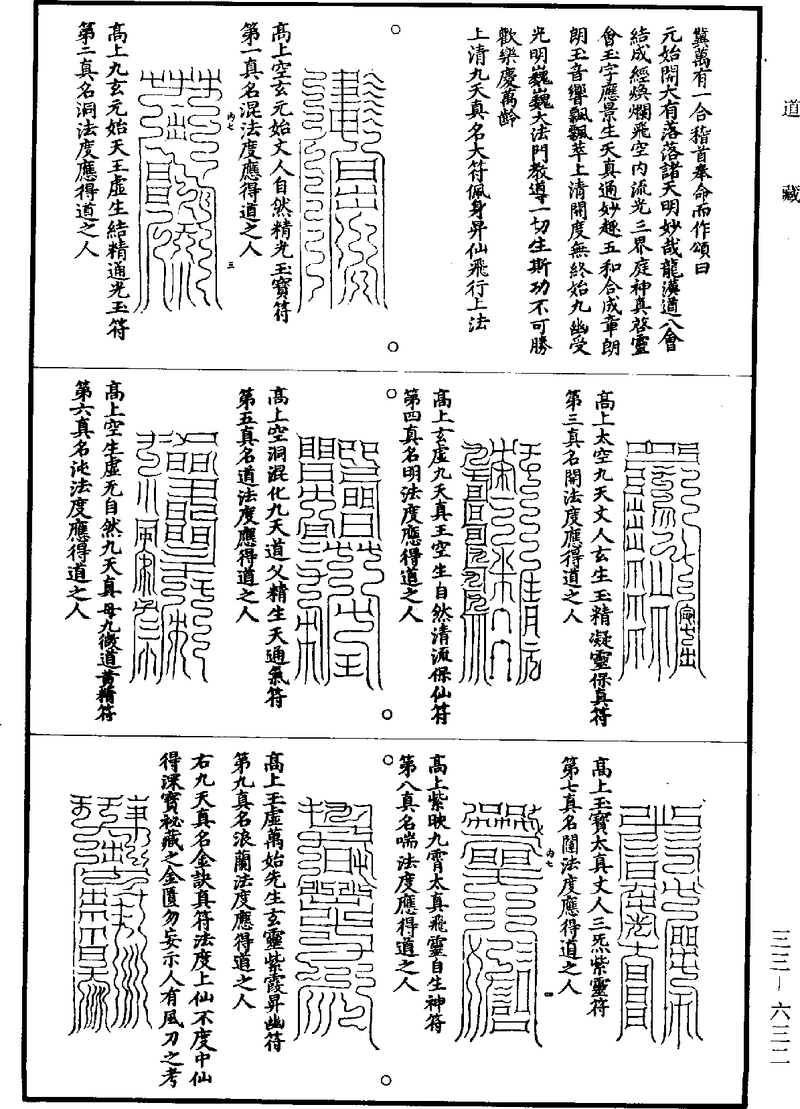 道藏
冀萬有一合稽首奉命而作頌曰
元始開大有落落諸天明妙哉龍漢道八會
結成經煥爛飛空內流光三界庭神真啓靈
會玉字應景生天真通妙趣五和合成章朗
朗玉音響飄飄萃上清開度無終始九幽受
光明巍巍大法門教導一切生斯功不可勝
歡樂慶萬齡
上清九天真名大符佩身昇仙飛行上法
高上空玄元始丈人自然精光玉寶符
第一真名混法度應得道之人
內七
三
高上九玄元始天王虛生結精通光玉符
第二真名洞法度應得道之人
高上太空九天丈人玄生玉精凝靈保真符
第三真名閞法度應得道之人
高上玄虛九天真王空生自然清流保仙符
第四真名明法度應得道之人
高上空洞混化九天道父精生天通氣符
第五真名道法度應得道之人
高上空生虛无自然九天真母九微道黃精符
第六真名沌法度應得道之人
高上玉寶太真丈人三炁紫靈符
第七真名闓法度應得道之人
內七
四
高上紫映九霄太真飛靈自生神符
第八真名喘法度應得道之人
高上玉虛萬始先生玄靈紫霞昇幽符
第九真名浪蘭法度應得道之人
右九天真名金訣真符法度上仙不度中仙
得深寶祕藏之金匱勿妄示人有風刀之考
三三—六三二